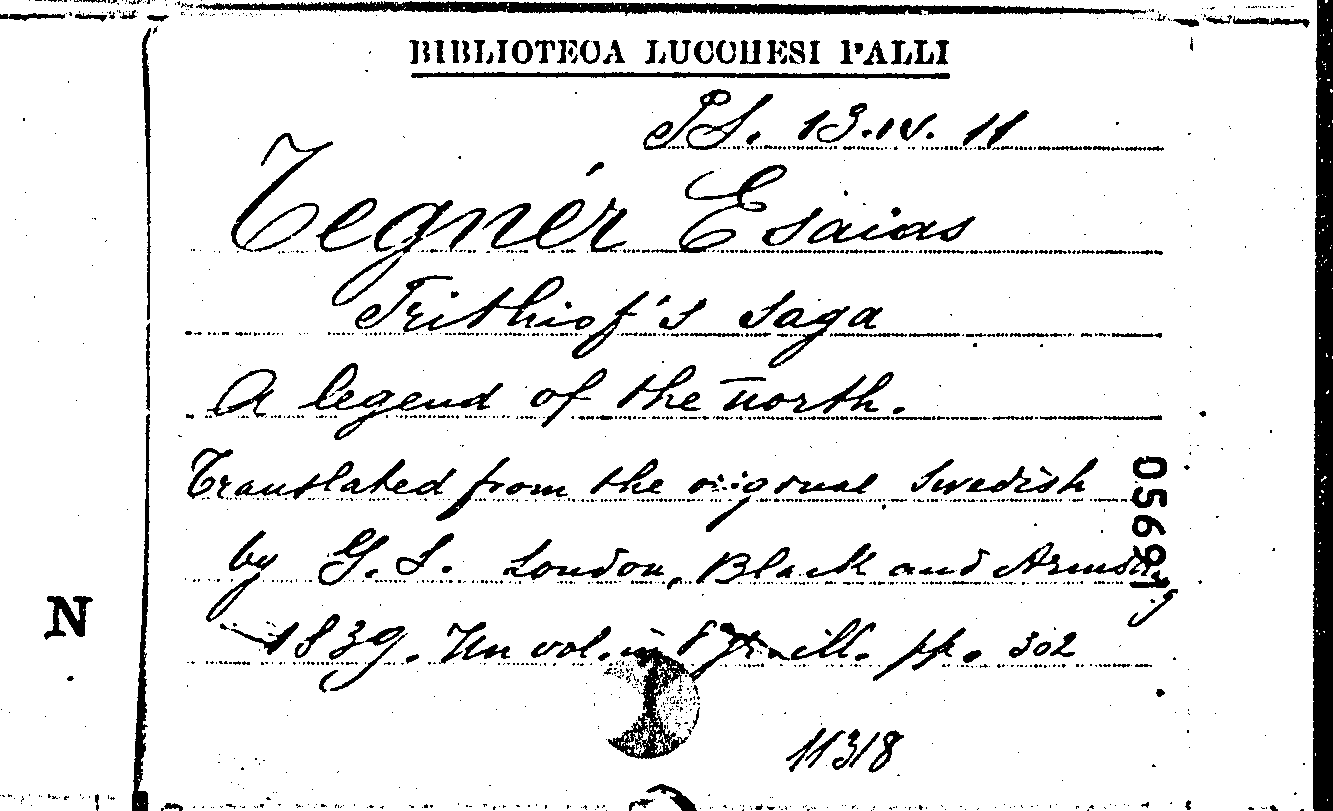 BIBLIOTECA LUCCHESI PALLI
PS. 13.IV. 11
Tegnér Esaias
Frithiof's saga
A legend of the north.
Translated from the original Swedish
by G. S. London, Black and Armstrong
1839. Un vol. in 8° ill. pp. 302
11318
N
05691